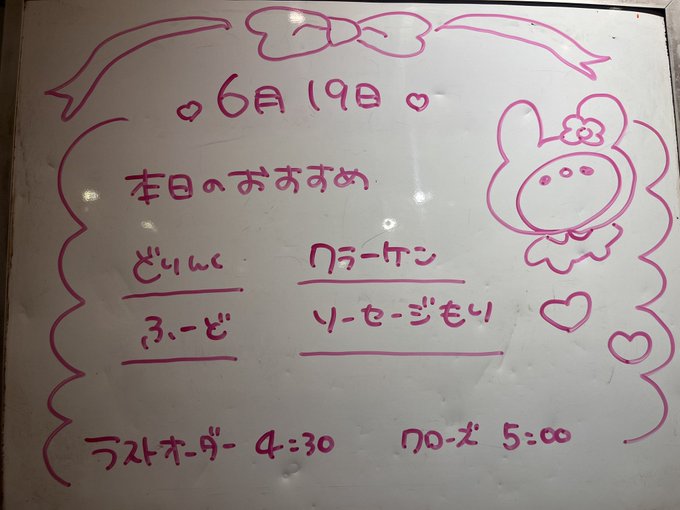 ♡ 6月19日 ♡
本日のおすすめ
どりんく クラーケン
ふーど ソーセージもり
ラストオーダー 4:30 クローズ 5:00